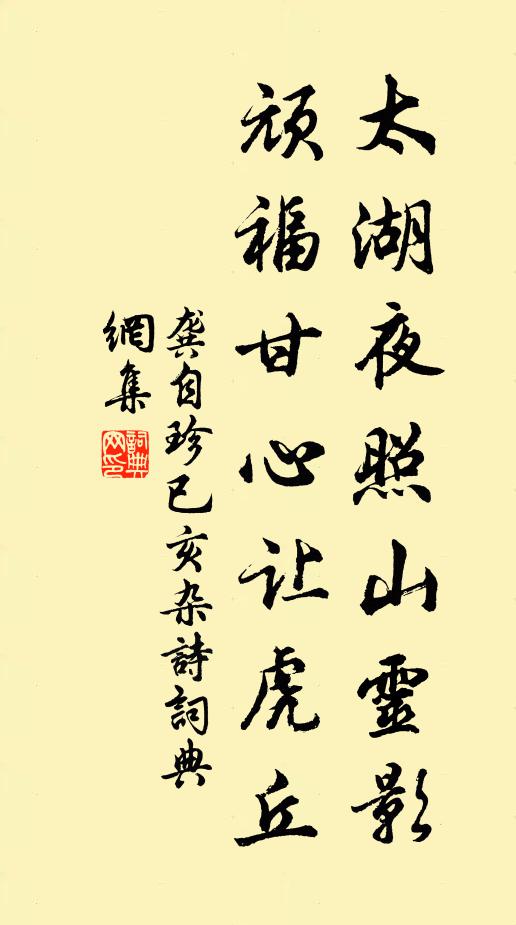 太湖夜照山靈影
頑福甘心让虎丘
龔自珍已亥杂詩詞典
網集
詞典
网印